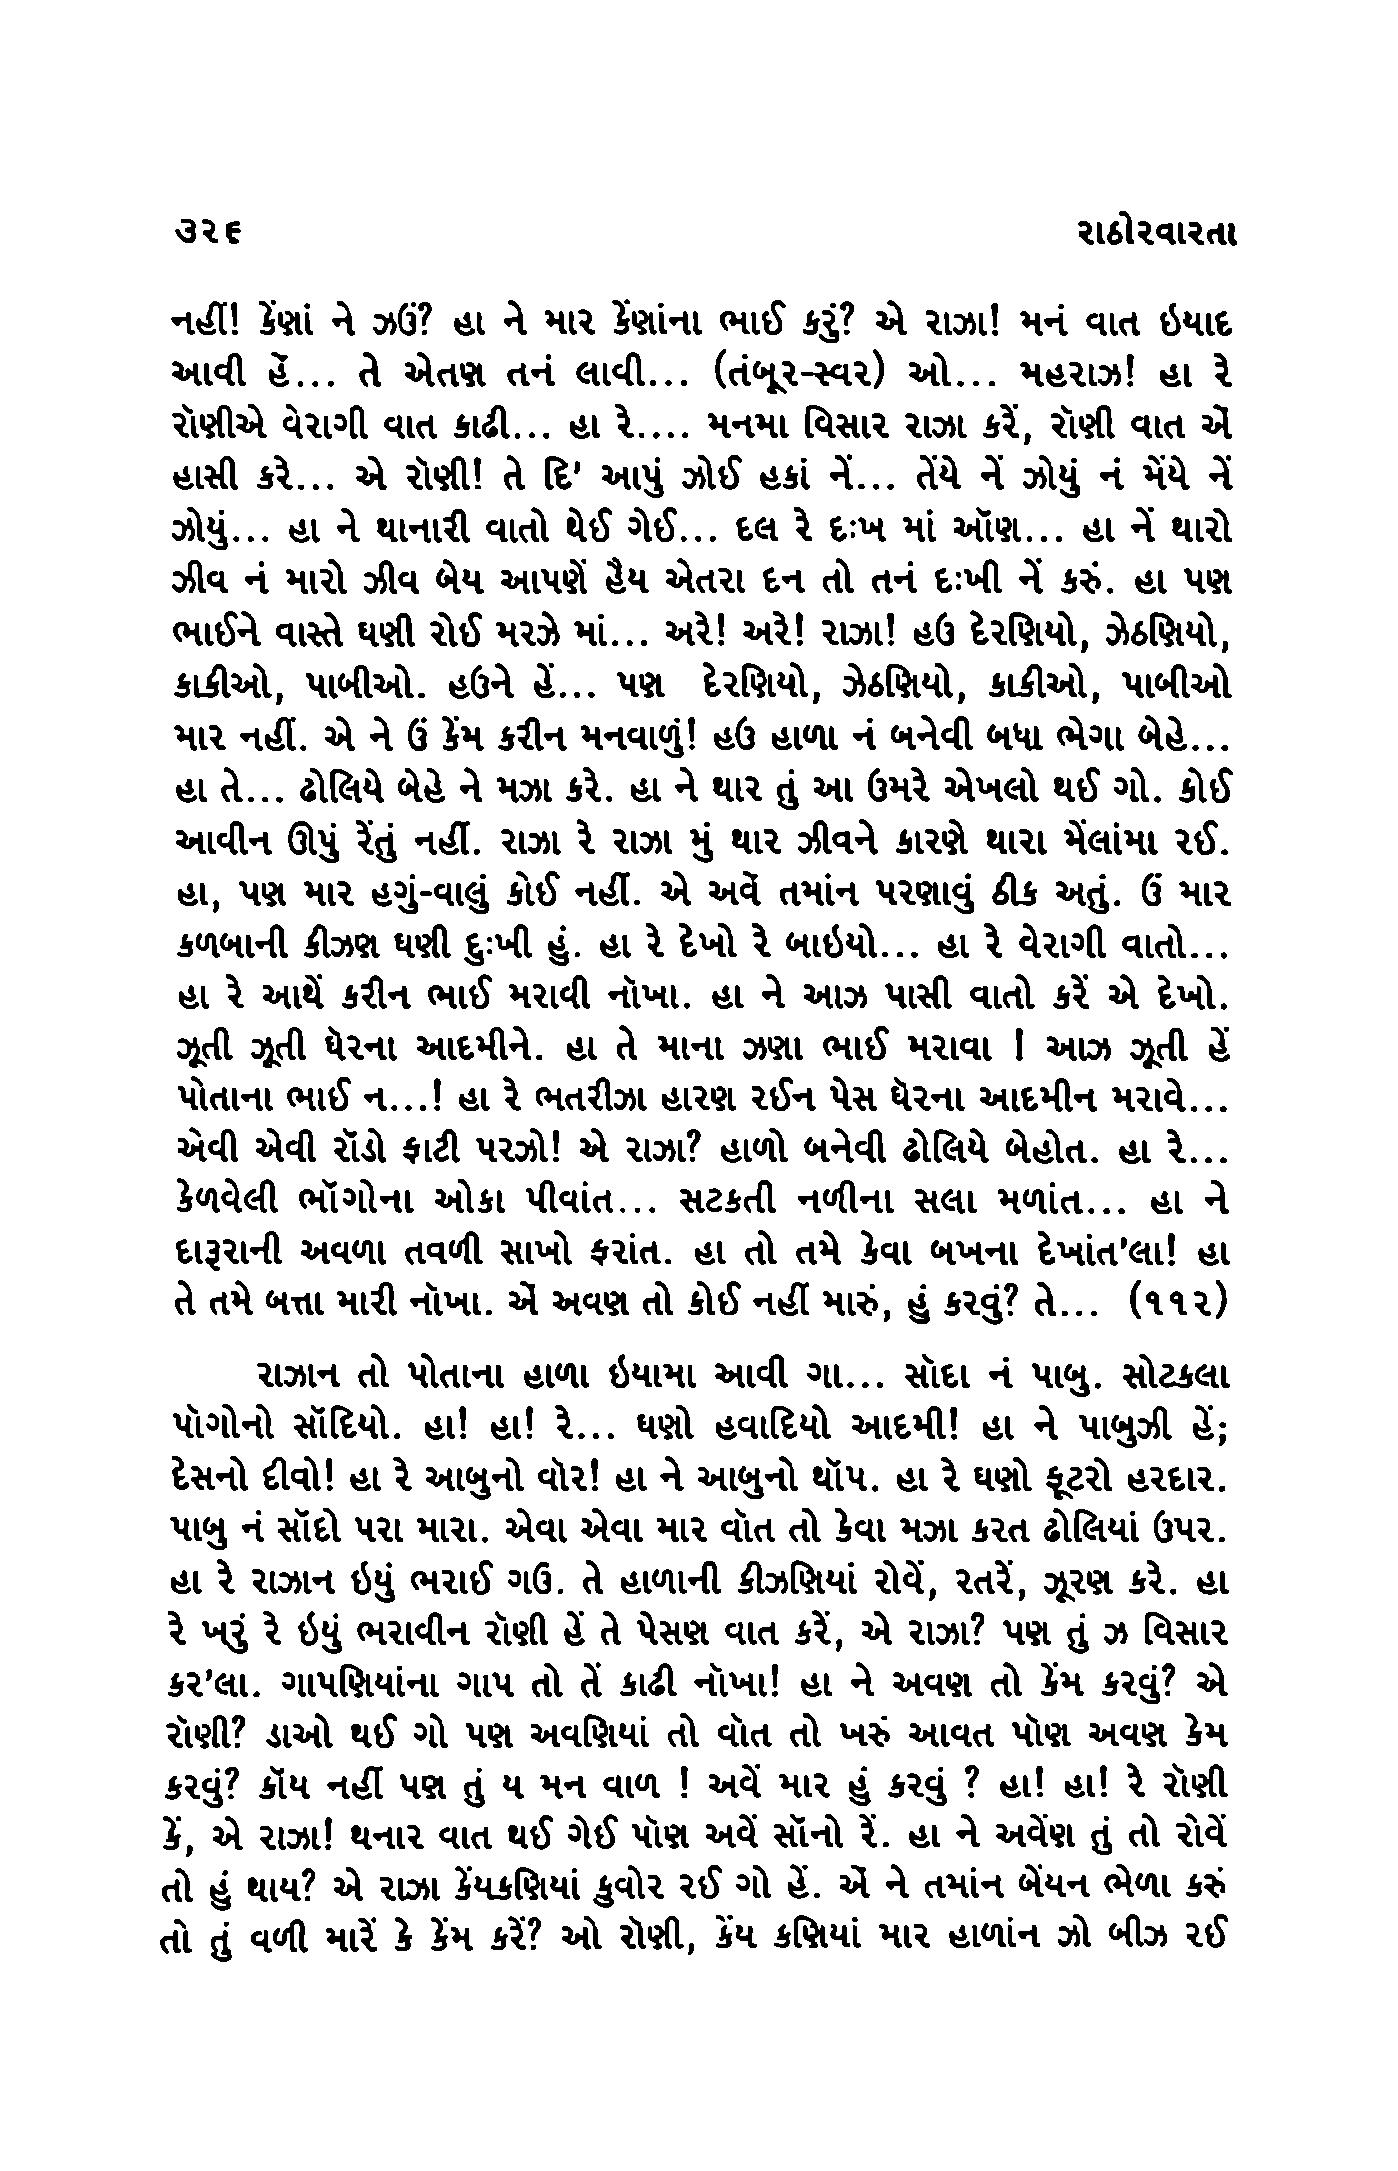 ૩૨૬ રાઠોરવારતા
નહીં! કેંણાં ને ઝઉં? હા ને માર કેંણાંના ભાઈ કરું? એ રાઝા! મનં વાત ઇયાદ
આવી હેં... તે એતણ તનં લાવી... (તંબૂર-સ્વર) ઓ... મહરાઝ! હા રે
રૉણીએ વેરાગી વાત કાઢી... હા રે.... મનમા વિસાર રાઝા કરેં, રૉણી વાત ઍં
હાસી કરે... એ રૉણી! તે દિ' આપું ઝોઈ હકાં નેં... તેંયે નેં ઝોયું નં મેંયે નેં
ઝોયું... હા ને થાનારી વાતો થેઈ ગેઈ... દલ રે દઃખ માં ઑણ... હા નેં થારો
ઝીવ નં મારો ઝીવ બેય આપણેં હૈય એતરા દન તો તનં દઃખી નેં કરું. હા પણ
ભાઈને વાસ્તે ઘણી રોઈ મરઝે માં... અરે! અરે! રાઝા! હઉ દેરણિયો, ઝેઠણિયો,
કાકીઓ, પાબીઓ. હઉને હેં... પણ દેરણિયો, ઝેઠણિયો, કાકીઓ, પાબીઓ
માર નહીં. એ ને ઉં કેંમ કરીન મનવાળું! હઉ હાળા નં બનેવી બધા ભેગા બેહે...
હા તે... ઢોલિયે બેહે ને મઝા કરે. હા ને થાર તું આ ઉમરે એખલો થઈ ગો. કોઈ
આવીન ઊપું રેંતું નહીં. રાઝા રે રાઝા મું થાર ઝીવને કારણે થારા મેંલાંમા રઈ.
હા, પણ માર હગું-વાલું કોઈ નહીં. એ અવેં તમાંન પરણાવું ઠીક અતું. ઉં માર
કળબાની કીઝણ ઘણી દુઃખી હું. હા રે દેખો રે બાઇયો... હા રે વેરાગી વાતો...
હા રે આથેં કરીન ભાઈ મરાવી નૉખા. હા ને આઝ પાસી વાતો કરેં એ દેખો.
ઝૂતી ઝૂતી ઘૅરના આદમીને. હા તે માના ઝણા ભાઈ મરાવા ! આઝ ઝૂતી હેં
પોતાના ભાઈ ન...! હા રે ભતરીઝા હારણ રઈન પેસ ઘૅરના આદમીન મરાવે...
એવી એવી રૉંડો ફાટી પરઝો! એ રાઝા? હાળો બનેવી ઢોલિયે બેહોત. હા રે...
કેળવેલી ભૉંગોના ઓકા પીવાંત... સટકતી નળીના સલા મળાંત... હા ને
દારૂરાની અવળા તવળી સાખો ફરાંત. હા તો તમે કેવા બખના દેખાંત'લા! હા
તે તમે બત્તા મારી નૉખા. ઍં અવણ તો કોઈ નહીં મારું, હું કરવું? તે... (૧૧૨)
રાઝાન તો પોતાના હાળા ઇયામા આવી ગા... સૉદા નં પાબુ. સોટકલા
પૉગોનો સૉંદિયો. હા! હા! રે... ઘણો હવાદિયો આદમી! હા ને પાબુઝી હેં;
દેસનો દીવો! હા રે આબુનો વૉર! હા ને આબુનો થૉંપ. હા રે ઘણો ફૂટરો હરદાર.
પાબુ નં સૉંદો પરા મારા. એવા એવા માર વૉત તો કેવા મઝા કરત ઢોલિયાં ઉપર.
હા રે રાઝાન ઇયું ભરાઈ ગઉ. તે હાળાની કીઝણિયાં રોવેં, રતરેં, ઝૂરણ કરે. હા
રે ખરું રે ઇયું ભરાવીન રૉણી હેં તે પેસણ વાત કરેં, એ રાઝા? પણ તું ઝ વિસાર
કર'લા. ગાપણિયાંના ગાપ તો તેં કાઢી નૉખા! હા ને અવણ તો કેંમ કરવું? એ
રૉણી? ડાઓ થઈ ગો પણ અવણિયાં તો વૉત તો ખરું આવત પૉણ અવણ કેમ
કરવું? કૉંય નહીં પણ તું ય મન વાળ ! અવેં માર હું કરવું ? હા! હા! રે રૉણી
કેં, એ રાઝા! થનાર વાત થઈ ગેઈ પૉણ અવેં સૉંનો રેં. હા ને અવેંણ તું તો રોવેં
તો હું થાય? એ રાઝા કેંયકણિયાં કુવોર રઈ ગો હેં. ઍં ને તમાંન બેંયન ભેળા કરું
તો તું વળી મારેં કે કેંમ કરેં? ઓ રૉણી, કેંય કણિયાં માર હાળાંન ઝો બીઝ રઈ